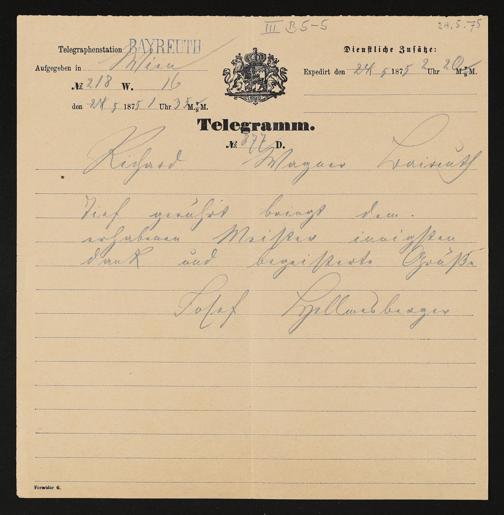 III B 5-5
24.5.75
Telegraphenstation BAYREUTH
Dienstliche Zusätze:
Aufgegeben in Wien
Expedirt den 24 5 1875 2 Uhr 20 M. M.
№ 218 W. 16
den 24 5 1875 1 Uhr 35 M. M.
Telegramm.
№ 877 D.
Richard Wagner Baireuth
Tief gerührt bringt dem
erhabenen Meister innigsten
dank und begeisterte Grüße
Josef Hellmesberger
Formular G.